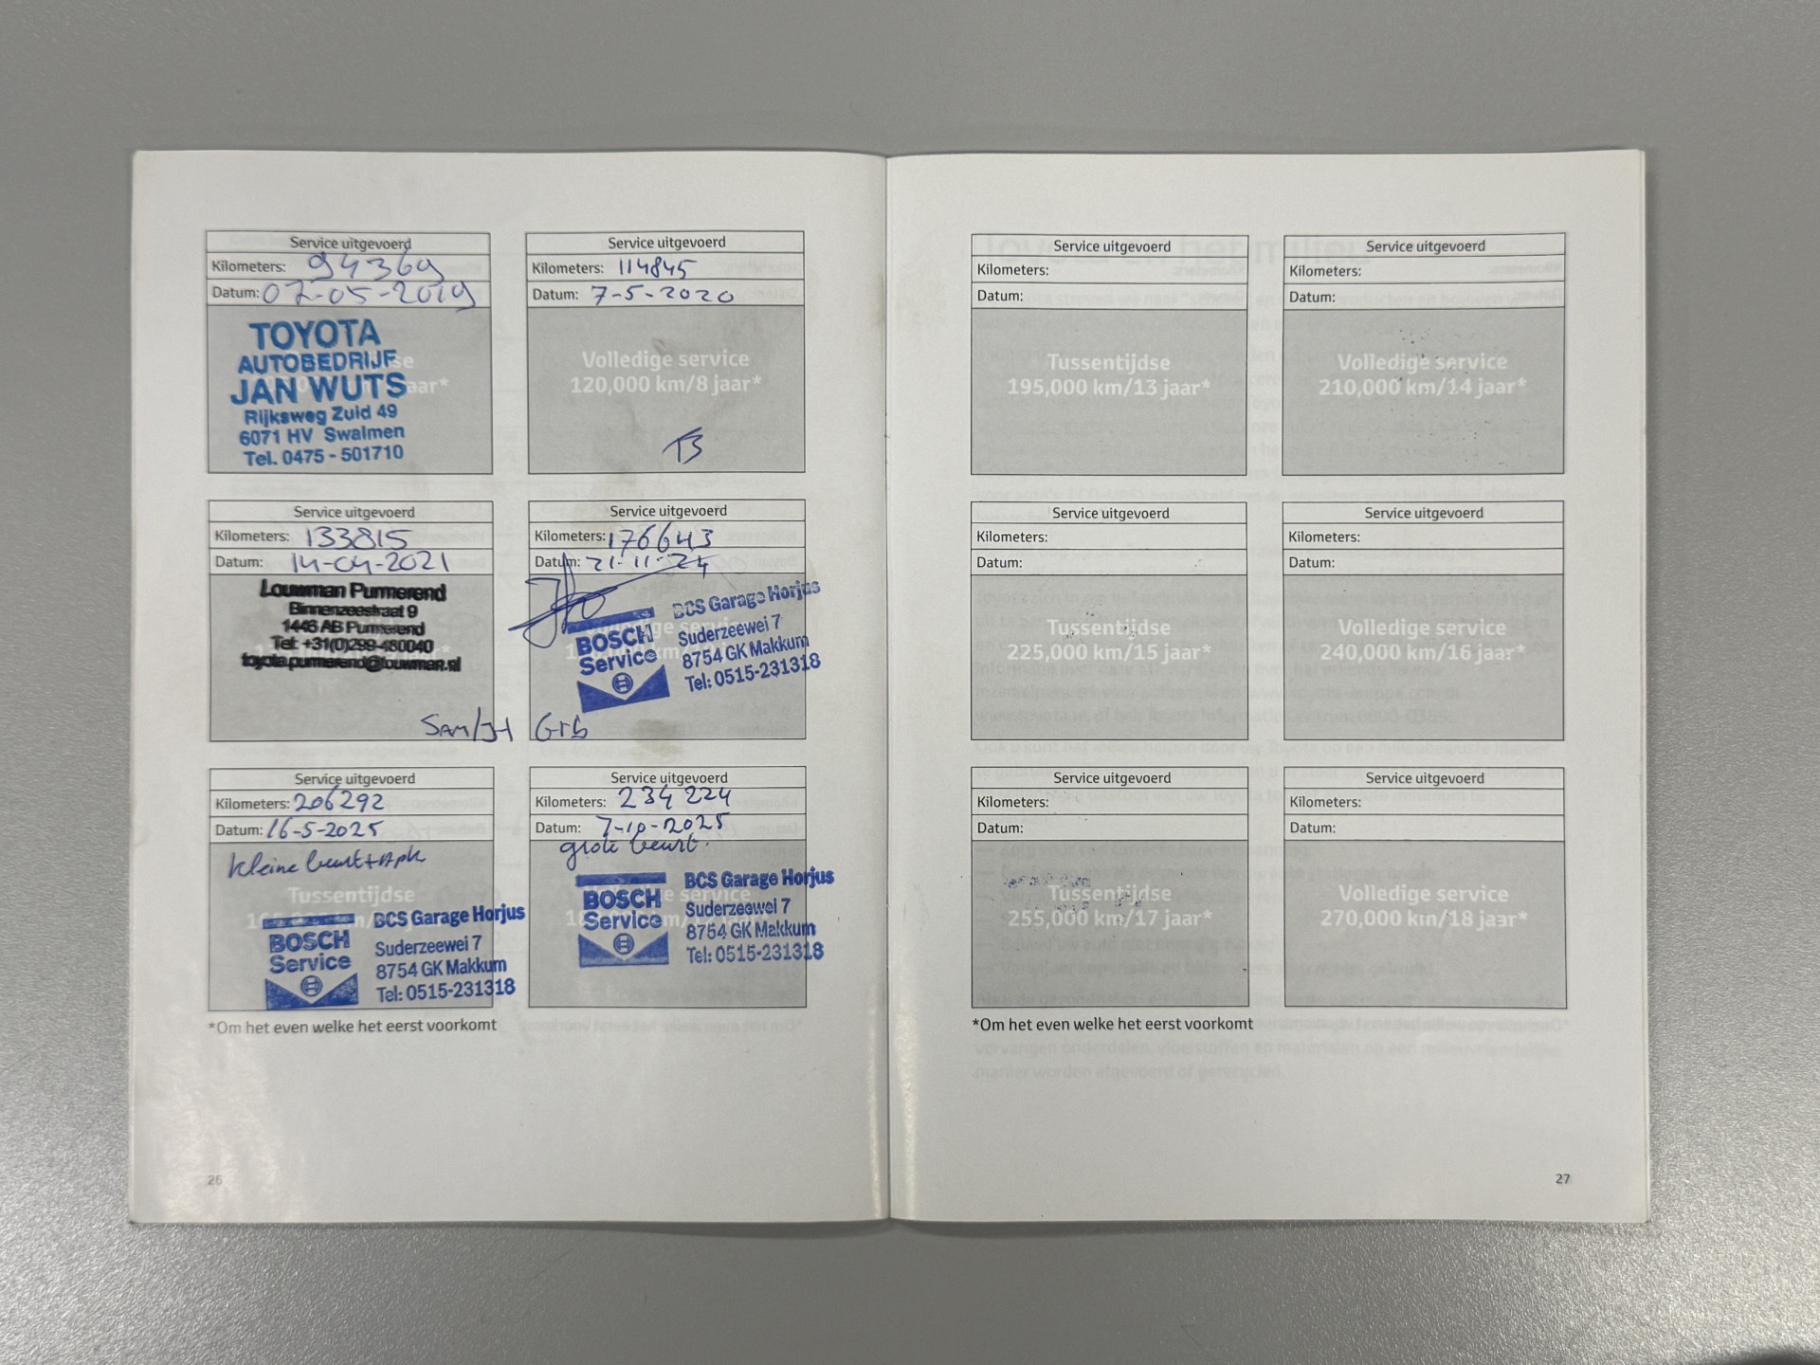 Service uitgevoerd
Kilometers: 94369
Datum: 07-05-2019
TOYOTA
AUTOBEDRIJF
JAN WUTS
Rijksweg Zuid 49
6071 HV Swalmen
Tel. 0475 - 501710
Service uitgevoerd
Kilometers: 114845
Datum: 7-5-2020
Volledige service
120,000 km/8 jaar*
Service uitgevoerd
Kilometers: 133815
Datum: 14-04-2021
Louwman Purmerend
Binnenzeestraat 9
1446 AB Purmerend
Tel: +31(0)299-480040
toyota.purmerend@louwman.nl
Service uitgevoerd
Kilometers: 176643
Datum: 21-11-24
BOSCH
Service
BCS Garage Horjus
Suderzeewei 7
8754 GK Makkum
Tel: 0515-231318
Grb
Service uitgevoerd
Kilometers: 206292
Datum: 16-5-2025
kleine beurt + Apk
Tussentijdse
BOSCH
Service
BCS Garage Horjus
Suderzeewei 7
8754 GK Makkum
Tel: 0515-231318
Service uitgevoerd
Kilometers: 234 224
Datum: 7-10-2025
grote beurt.
BOSCH
Service
BCS Garage Horjus
Suderzeewei 7
8754 GK Makkum
Tel: 0515-231318
*Om het even welke het eerst voorkomt
26
Service uitgevoerd
Kilometers:
Datum:
Tussentijdse
195,000 km/13 jaar*
Service uitgevoerd
Kilometers:
Datum:
Volledige service
210,000 km/14 jaar*
Service uitgevoerd
Kilometers:
Datum:
Tussentijdse
225,000 km/15 jaar*
Service uitgevoerd
Kilometers:
Datum:
Volledige service
240,000 km/16 jaar*
Service uitgevoerd
Kilometers:
Datum:
Tussentijdse
255,000 km/17 jaar*
Service uitgevoerd
Kilometers:
Datum:
Volledige service
270,000 km/18 jaar*
*Om het even welke het eerst voorkomt
27